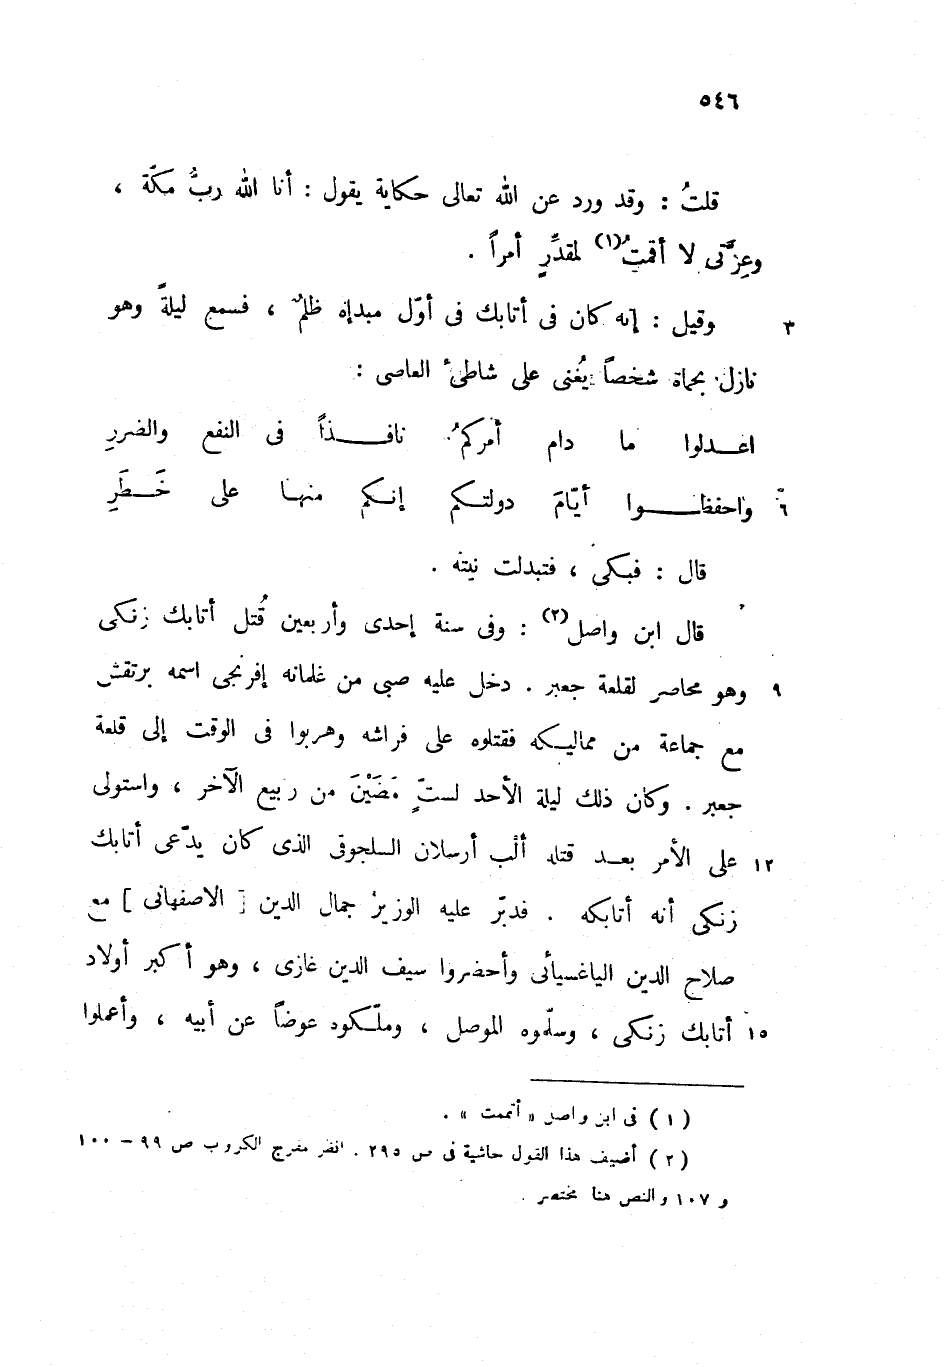 ٥٤٦
قلتُ : وقد ورد عن الله تعالى حكاية يقول : أنا الله ربُّ مكّة ،
وعِزّتى لا أقمتُ(١) لمقدِّرٍ أمراً .
٣ وقيل : إنه كان فى أتابك فى أوّل مبدإه ظلمٌ ، فسمع ليلةً وهو
نازل بحماة شخصاً يُغنى على شاطئ العاصى :
اعـدلوا ما دام أمركمُ نافـذاً فى النفع والضررِ
٦ واحفظـوا أيّامَ دولتـكم إنـكم منهـا على خَـطَرِ
قال : فبكى ، فتبدلت نيته .
قال ابن واصل(٢) : وفى سنة إحدى وأربعين قُتل أتابك زنكى
٩ وهو محاصر لقلعة جعبر . دخل عليه صبى من غلمانه إفرنجى اسمه برتقش
مع جماعة من مماليـكه فقتلوه على فراشه وهربوا فى الوقت إلى قلعة
جعبر . وكان ذلك ليلة الأحد لستٍّ مَضَيْنَ من ربيع الآخر ، واستولى
١٢ على الأمر بعـد قتله ألْب أرسلان السلجوقى الذى كان يدّعى أتابك
زنـكى أنه أتابكه . فدبّر عليه الوزيرُ جمال الدين [ الاصفهانى ] مع
صلاح الدين الياغسيانى وأحضروا سيف الدين غازى ، وهو أكبر أولاد
١٥ أتابك زنـكى ، وسلّموه الموصل ، وملّـكوه عوضاً عن أبيه ، وأعملوا
(١) فى ابن واصل « أتممت » .
(٢) أضيف هذا القول حاشية فى ص ٢٩٥ . انظر مفرج الكروب ص ٩٩ – ١٠٠
و ١٠٧ والنص هنا مختصر .